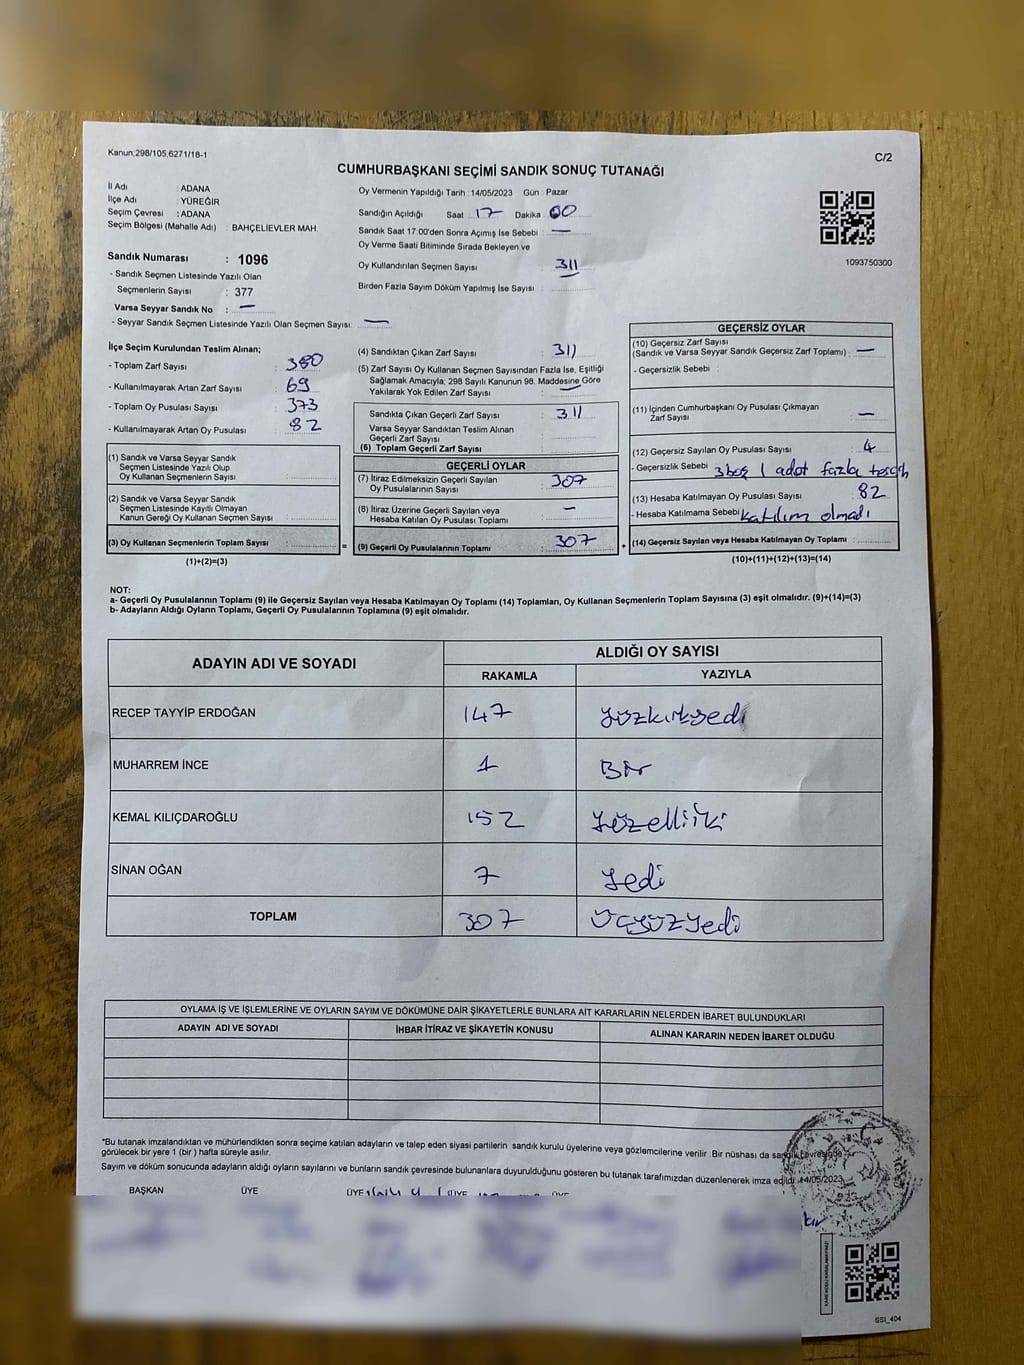 Kanun;298/105,6271/18-1
C/2
CUMHURBAŞKANI SEÇİMİ SANDIK SONUÇ TUTANAĞI
İl Adı : ADANA
İlçe Adı : YÜREĞİR
Seçim Çevresi : ADANA
Seçim Bölgesi (Mahalle Adı) : BAHÇELİEVLER MAH.
Sandık Numarası : 1096
- Sandık Seçmen Listesinde Yazılı Olan
Seçmenlerin Sayısı : 377
Varsa Seyyar Sandık No : —
- Seyyar Sandık Seçmen Listesinde Yazılı Olan Seçmen Sayısı: —
Oy Vermenin Yapıldığı Tarih : 14/05/2023 Gün : Pazar
Sandığın Açıldığı Saat 17 Dakika 00
Sandık Saat 17.00'den Sonra Açımış İse Sebebi : —
Oy Verme Saati Bitiminde Sırada Bekleyen ve
Oy Kullandırılan Seçmen Sayısı : 311
Birden Fazla Sayım Döküm Yapılmış İse Sayısı :
1093750300
İlçe Seçim Kurulundan Teslim Alınan;
- Toplam Zarf Sayısı : 380
- Kullanılmayarak Artan Zarf Sayısı : 69
- Toplam Oy Pusulası Sayısı : 373
- Kullanılmayarak Artan Oy Pusulası : 82
(1) Sandık ve Varsa Seyyar Sandık
Seçmen Listesinde Yazılı Olup
Oy Kullanan Seçmenlerin Sayısı :
(2) Sandık ve Varsa Seyyar Sandık
Seçmen Listesinde Kayıtlı Olmayan
Kanun Gereği Oy Kullanan Seçmen Sayısı :
(3) Oy Kullanan Seçmenlerin Toplam Sayısı :
(1)+(2)=(3)
=
(4) Sandıktan Çıkan Zarf Sayısı : 311
(5) Zarf Sayısı Oy Kullanan Seçmen Sayısından Fazla İse, Eşitliği
Sağlamak Amacıyla; 298 Sayılı Kanunun 98. Maddesine Göre
Yakılarak Yok Edilen Zarf Sayısı : —
Sandıkta Çıkan Geçerli Zarf Sayısı : 311
Varsa Seyyar Sandıktan Teslim Alınan
Geçerli Zarf Sayısı :
(6) Toplam Geçerli Zarf Sayısı :
GEÇERLİ OYLAR
(7) İtiraz Edilmeksizin Geçerli Sayılan
Oy Pusulalarının Sayısı : 307
(8) İtiraz Üzerine Geçerli Sayılan veya
Hesaba Katılan Oy Pusulası Toplamı : —
(9) Geçerli Oy Pusulalarının Toplamı : 307
+
GEÇERSİZ OYLAR
(10) Geçersiz Zarf Sayısı
(Sandık ve Varsa Seyyar Sandık Geçersiz Zarf Toplamı) : —
- Geçersizlik Sebebi :
(11) İçinden Cumhurbaşkanı Oy Pusulası Çıkmayan
Zarf Sayısı : —
(12) Geçersiz Sayılan Oy Pusulası Sayısı : 4
- Geçersizlik Sebebi : 3 boş 1 adet fazla
(13) Hesaba Katılmayan Oy Pusulası Sayısı : 82
- Hesaba Katılmama Sebebi : katılım olmadı
(14) Geçersiz Sayılan veya Hesaba Katılmayan Oy Toplamı :
(10)+(11)+(12)+(13)=(14)
NOT:
a- Geçerli Oy Pusulalarının Toplamı (9) ile Geçersiz Sayılan veya Hesaba Katılmayan Oy Toplamı (14) Toplamları, Oy Kullanan Seçmenlerin Toplam Sayısına (3) eşit olmalıdır. (9)+(14)=(3)
b- Adayların Aldığı Oyların Toplamı, Geçerli Oy Pusulalarının Toplamına (9) eşit olmalıdır.
ADAYIN ADI VE SOYADI ALDIĞI OY SAYISI
RAKAMLA YAZIYLA
RECEP TAYYİP ERDOĞAN 147 yüzkırkyedi
MUHARREM İNCE 1 Bir
KEMAL KILIÇDAROĞLU 152 yüzelliiki
SİNAN OĞAN 7 yedi
TOPLAM 307 üçyüzyedi
OYLAMA İŞ VE İŞLEMLERİNE VE OYLARIN SAYIM VE DÖKÜMÜNE DAİR ŞİKAYETLERLE BUNLARA AİT KARARLARIN NELERDEN İBARET BULUNDUKLARI
ADAYIN ADI VE SOYADI İHBAR İTİRAZ VE ŞİKAYETİN KONUSU ALINAN KARARIN NEDEN İBARET OLDUĞU
*Bu tutanak imzalandıktan ve mühürlendikten sonra seçime katılan adayların ve talep eden siyasi partilerin sandık kurulu üyelerine veya gözlemcilerine verilir. Bir nüshası da sandık çevresinde
görülecek bir yere 1 (bir) hafta süreyle asılır.
Sayım ve döküm sonucunda adayların aldığı oyların sayılarını ve bunların sandık çevresinde bulunanlara duyurulduğunu gösteren bu tutanak tarafımızdan düzenlenerek imza edildi. 14/05/2023
BAŞKAN ÜYE ÜYE ÜYE ÜYE
SSI_404